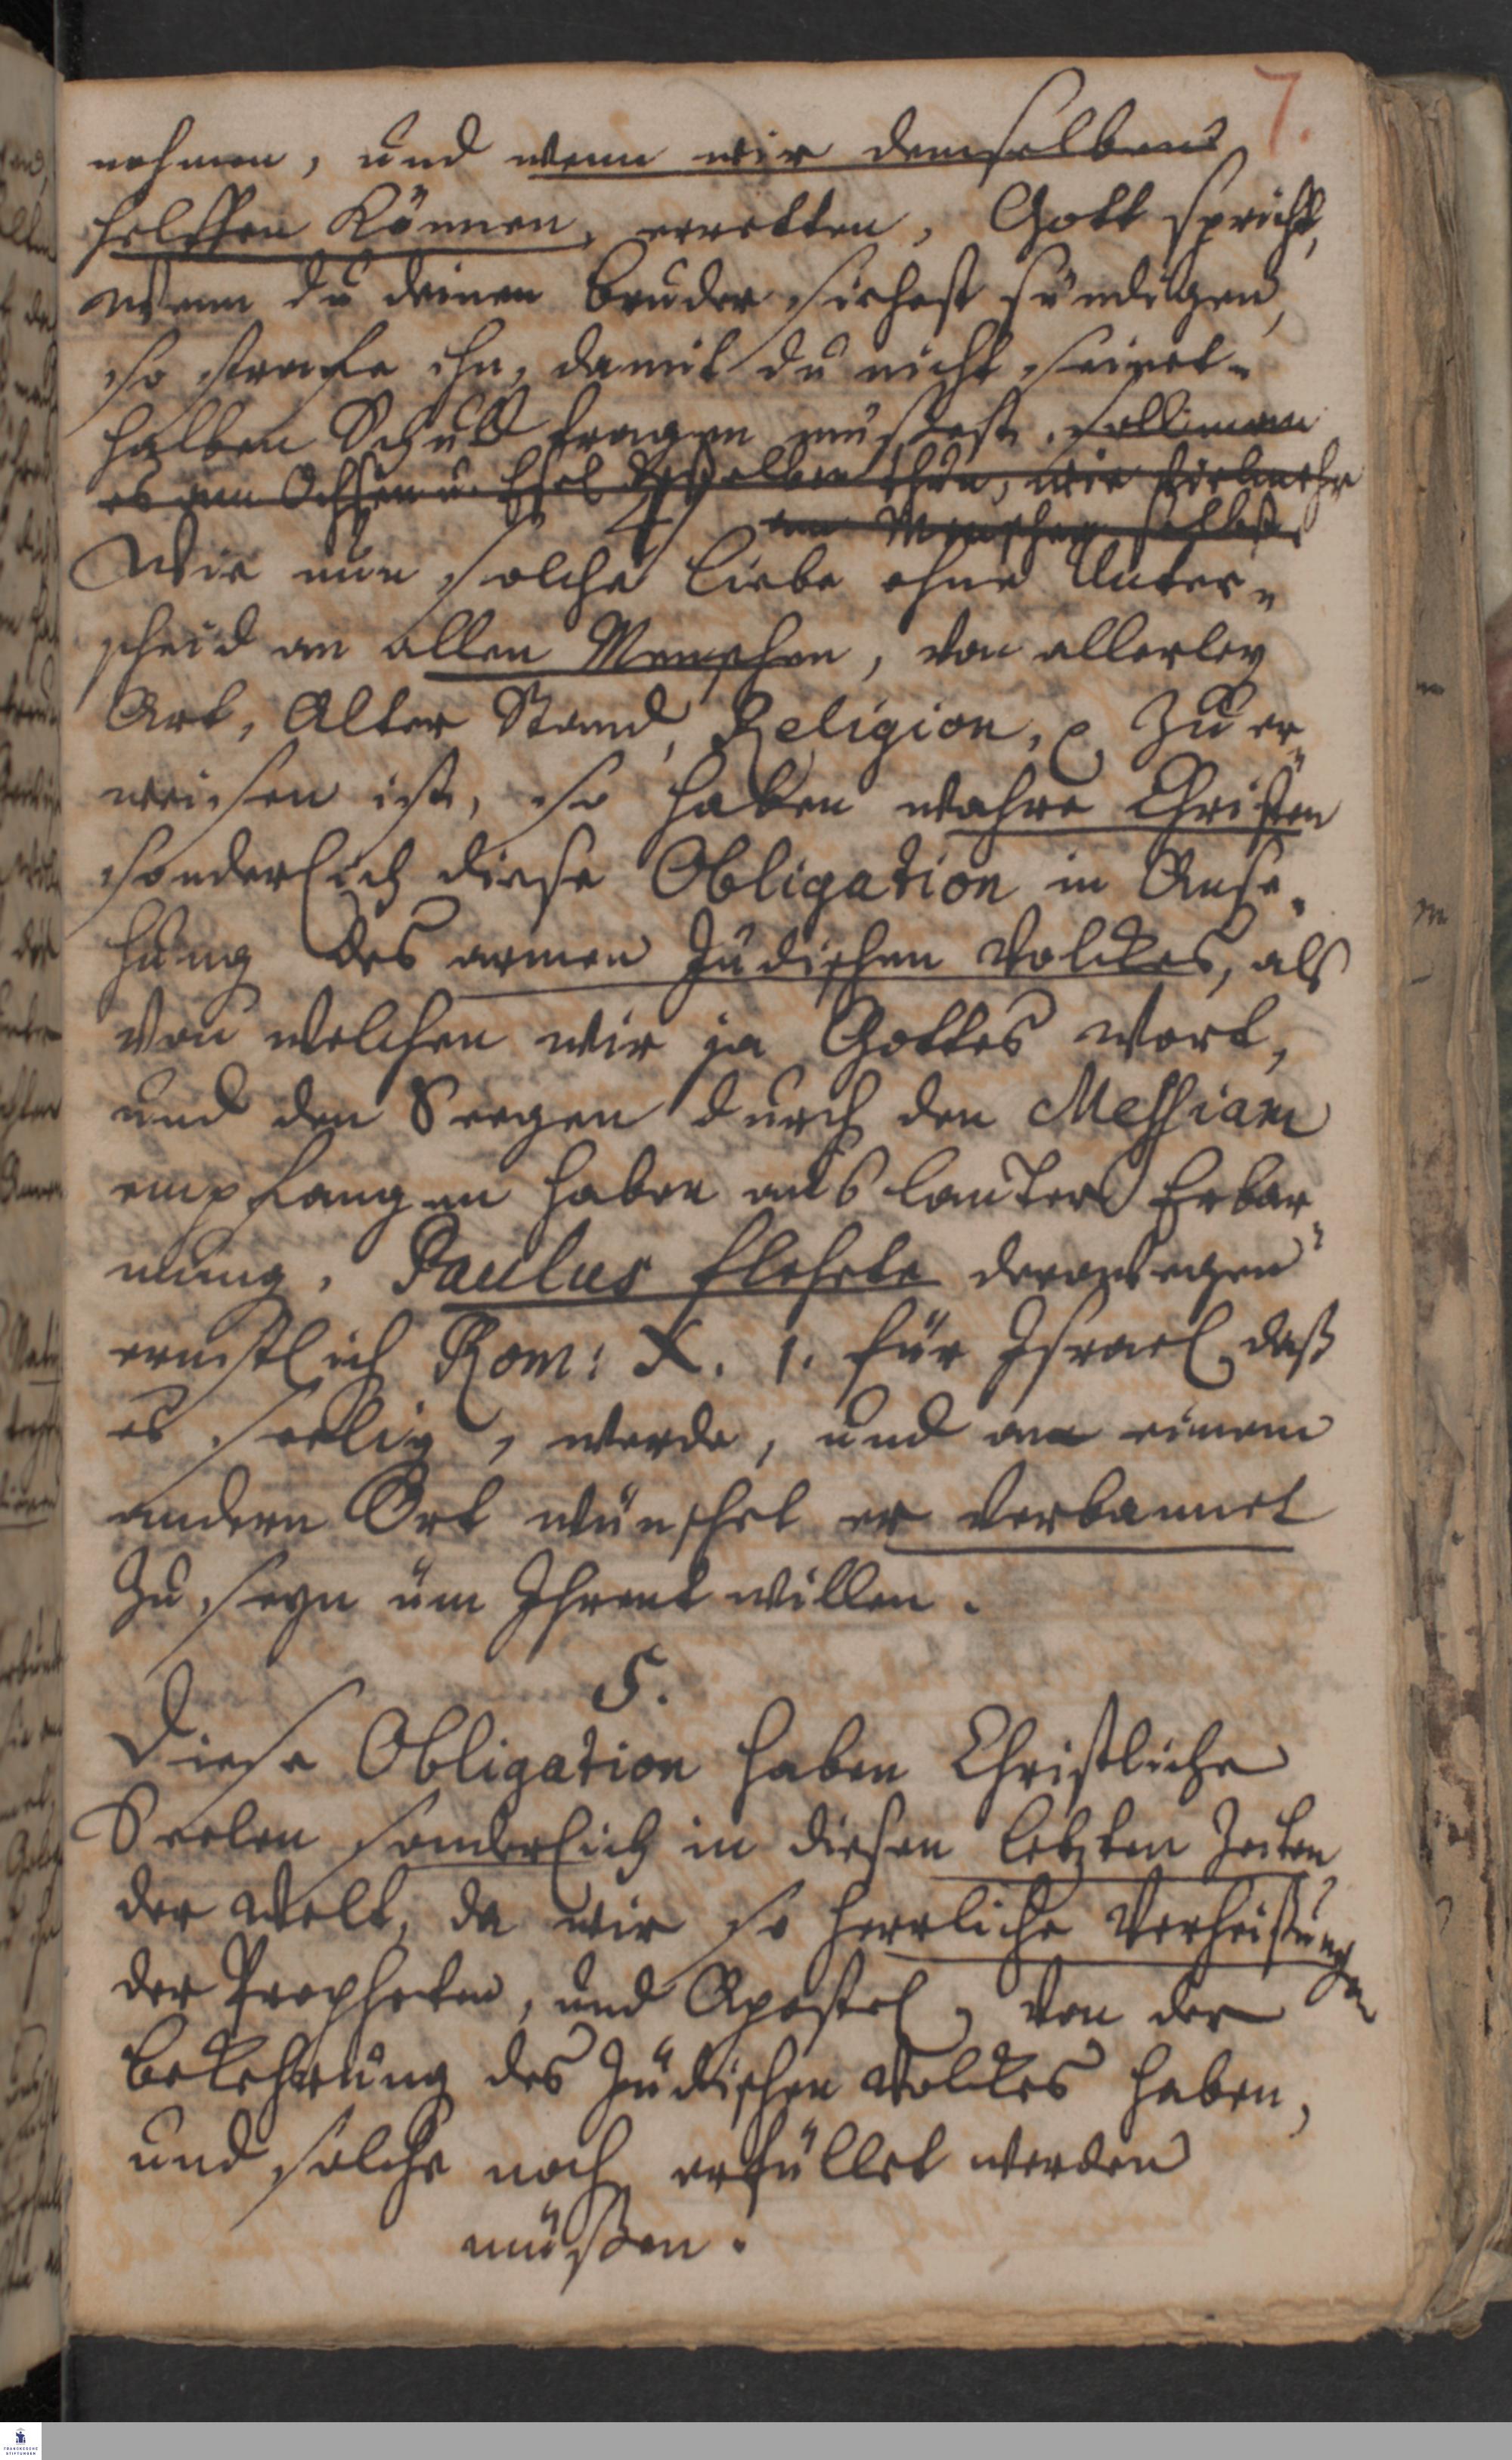 7.
nehmen, und wenn wir demselben
helffen können, erretten. Gott spricht,
Wenn du deinen bruder siehest sündigen,
so strafe ihn, damit du nicht seinet-
halben Schuld tragen müßest. soll man
es am Ochsen u. Esel deßelben thun, wie vielmehr
am Menschen selbst.
4.
Wie nun solche liebe ohne Unter-
scheid an allen Menschen, von allerley
Art, Alter Stand, Religion, zu er-
weisen ist, so haben wahre Christen
sonderlich diese Obligation in Anse-
hung des armen Jüdischen Volckes, als
von welchen wir ja Gottes Wort,
und den Seegen durch den Messiam
empfangen haben aus lauter Erbar-
mung. Paulus flehete derowegen
ernstlich Rom: X. 1. für Israel, daß
es seelig, werde, und an einem
andern Ort wünschet er verbannet
zu seyn üm Ihrent willen.
5.
Diese Obligation haben Christliche
Seelen sonderlich in diesen letzten Zeiten
der Welt, da wir so herrliche Verheißungen
der Propheten, und Apostel, von der
bekehrung des Jüdischen Volckes haben,
und solche noch erfüllet werden
müßen.
FRANCKESCHE
STIFTUNGEN